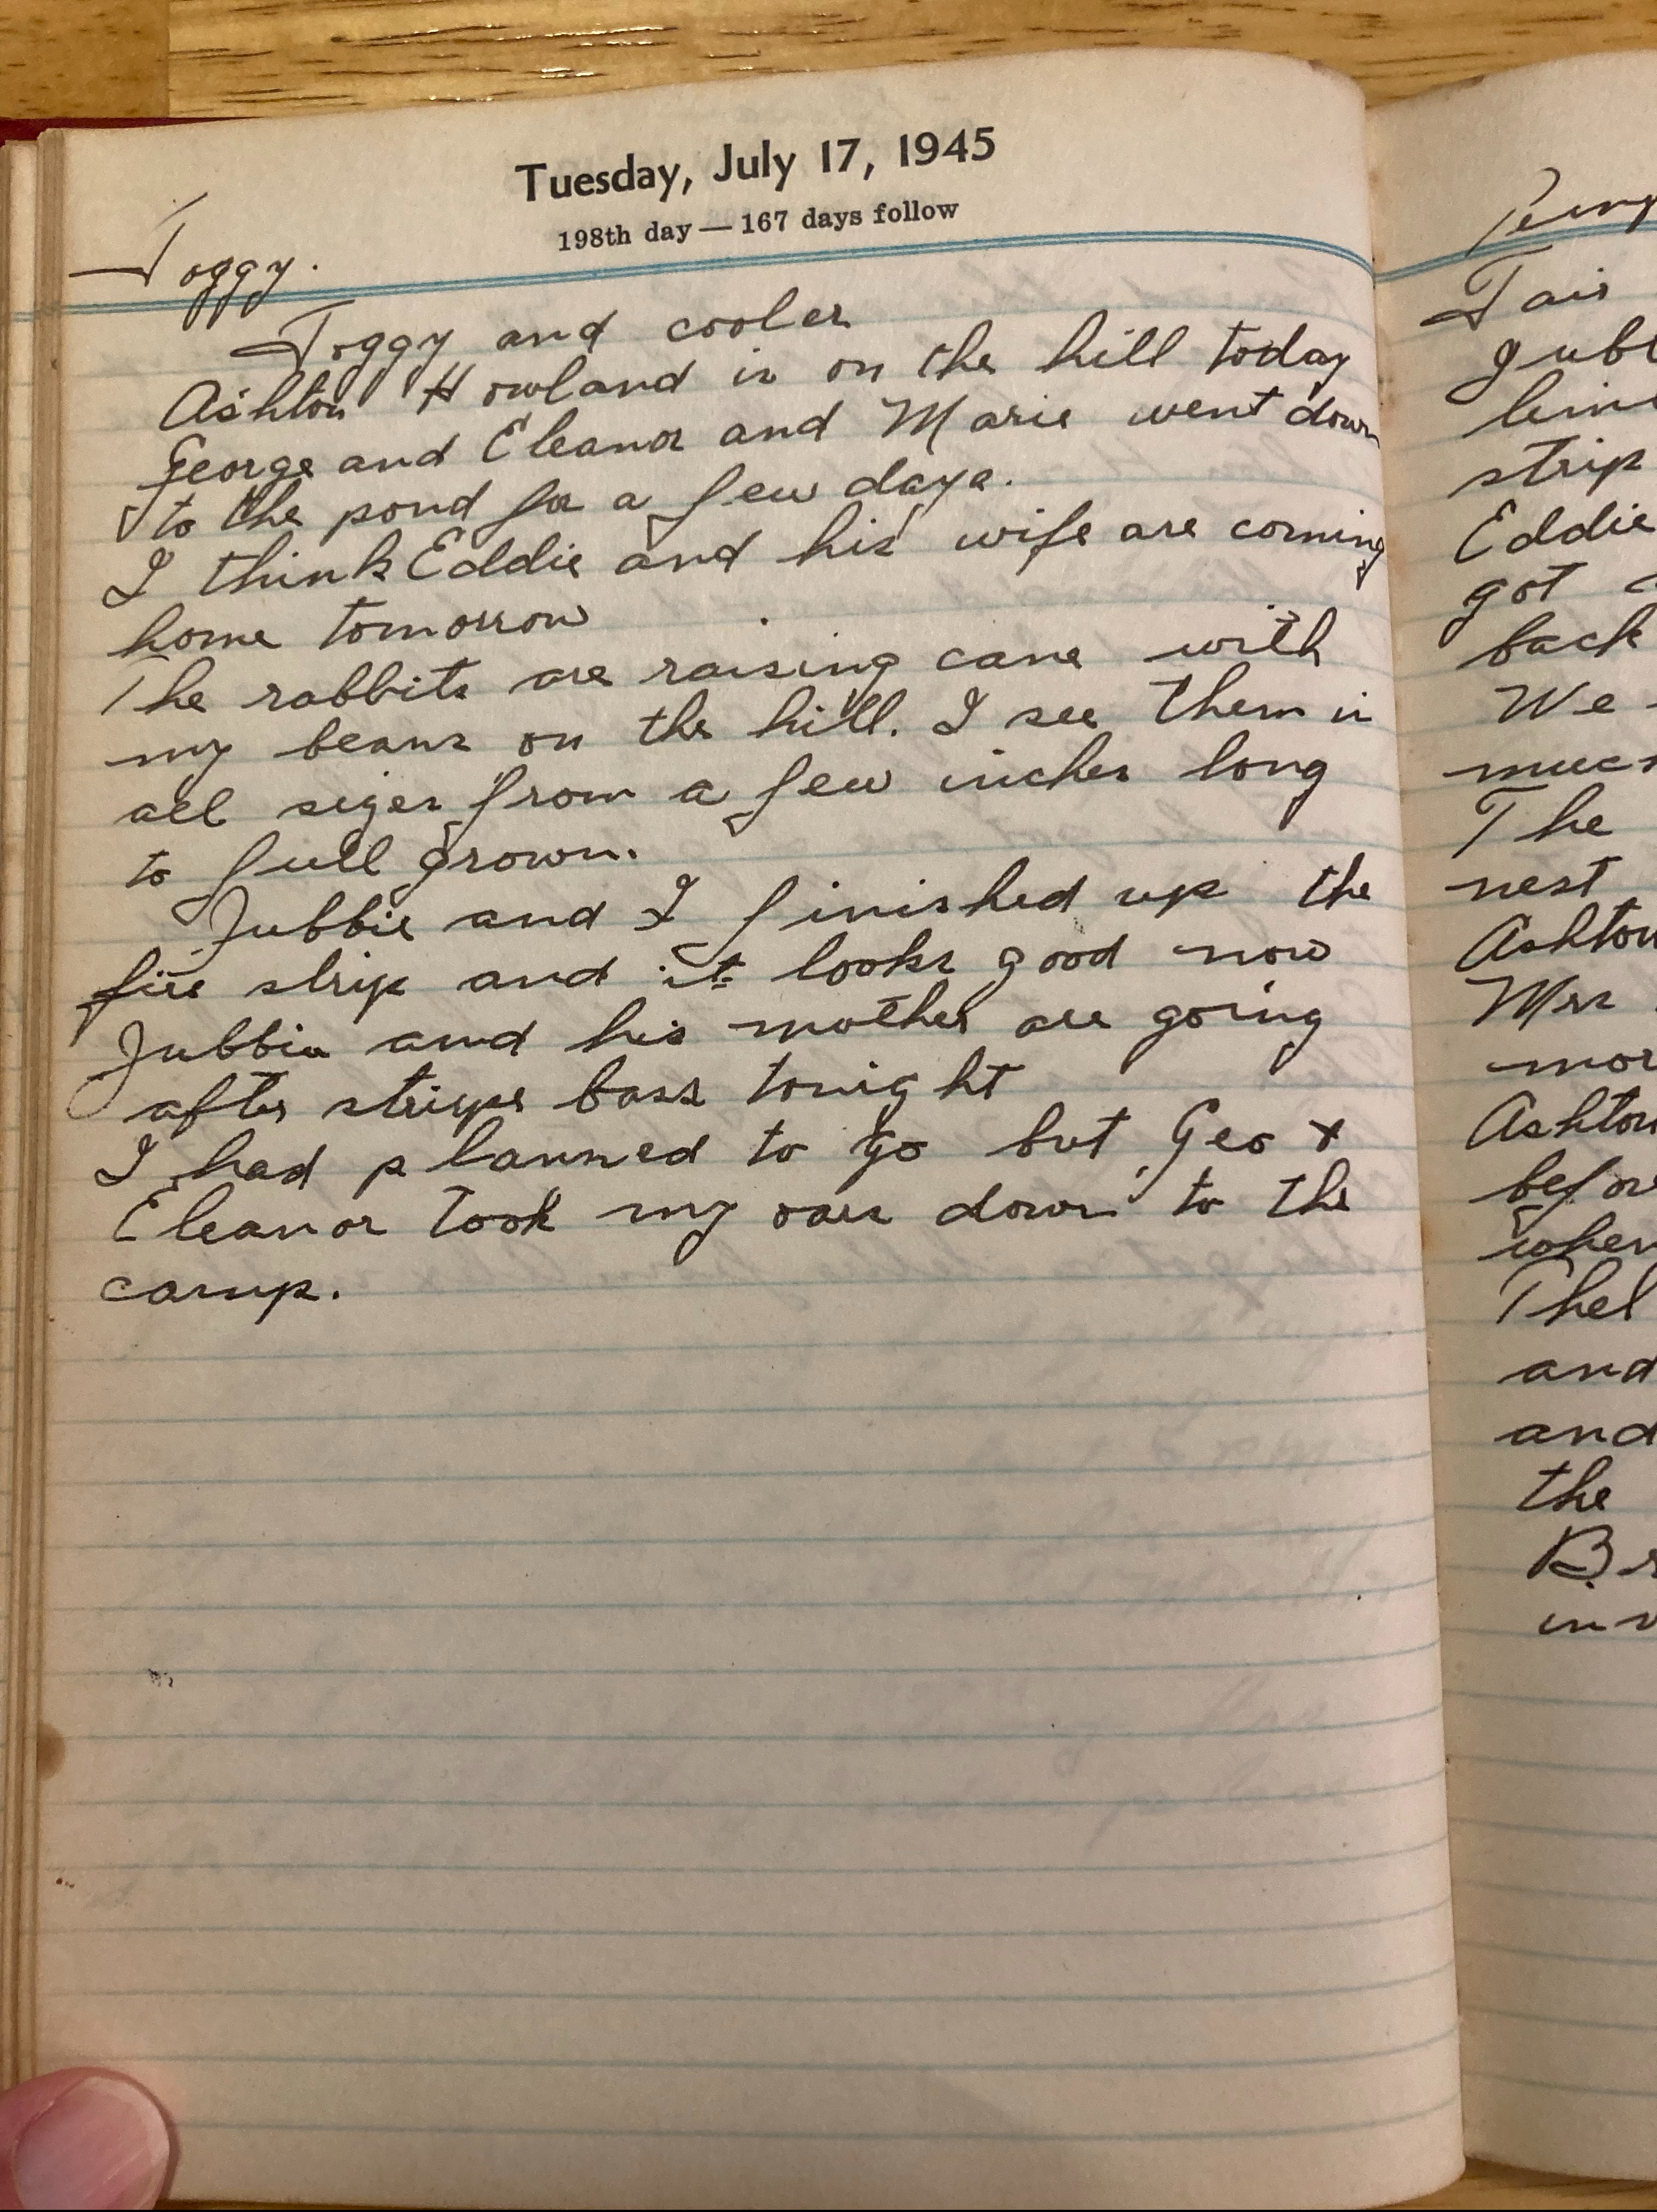 Tuesday, July 17, 1945
198th day — 167 days follow
Foggy.
Foggy and cooler
Ashton Howland is on the hill today
George and Eleanor and Marie went down
to the pond for a few days.
I think Eddie and his wife are coming
home tomorrow
The rabbits are raising cane with
my beans on the hill. I see them in
all sizes from a few inches long
to full grown.
Jubbie and I finished up the
fire strip and it looks good now
Jubbie and his mother are going
after stripe bass tonight
I had planned to go but Geo +
Eleanor took my oars down to the
camp.
Fair
strip
Eddie
got
back
We
The
nest
Ashton
Mrs
Ashton
and
and
the